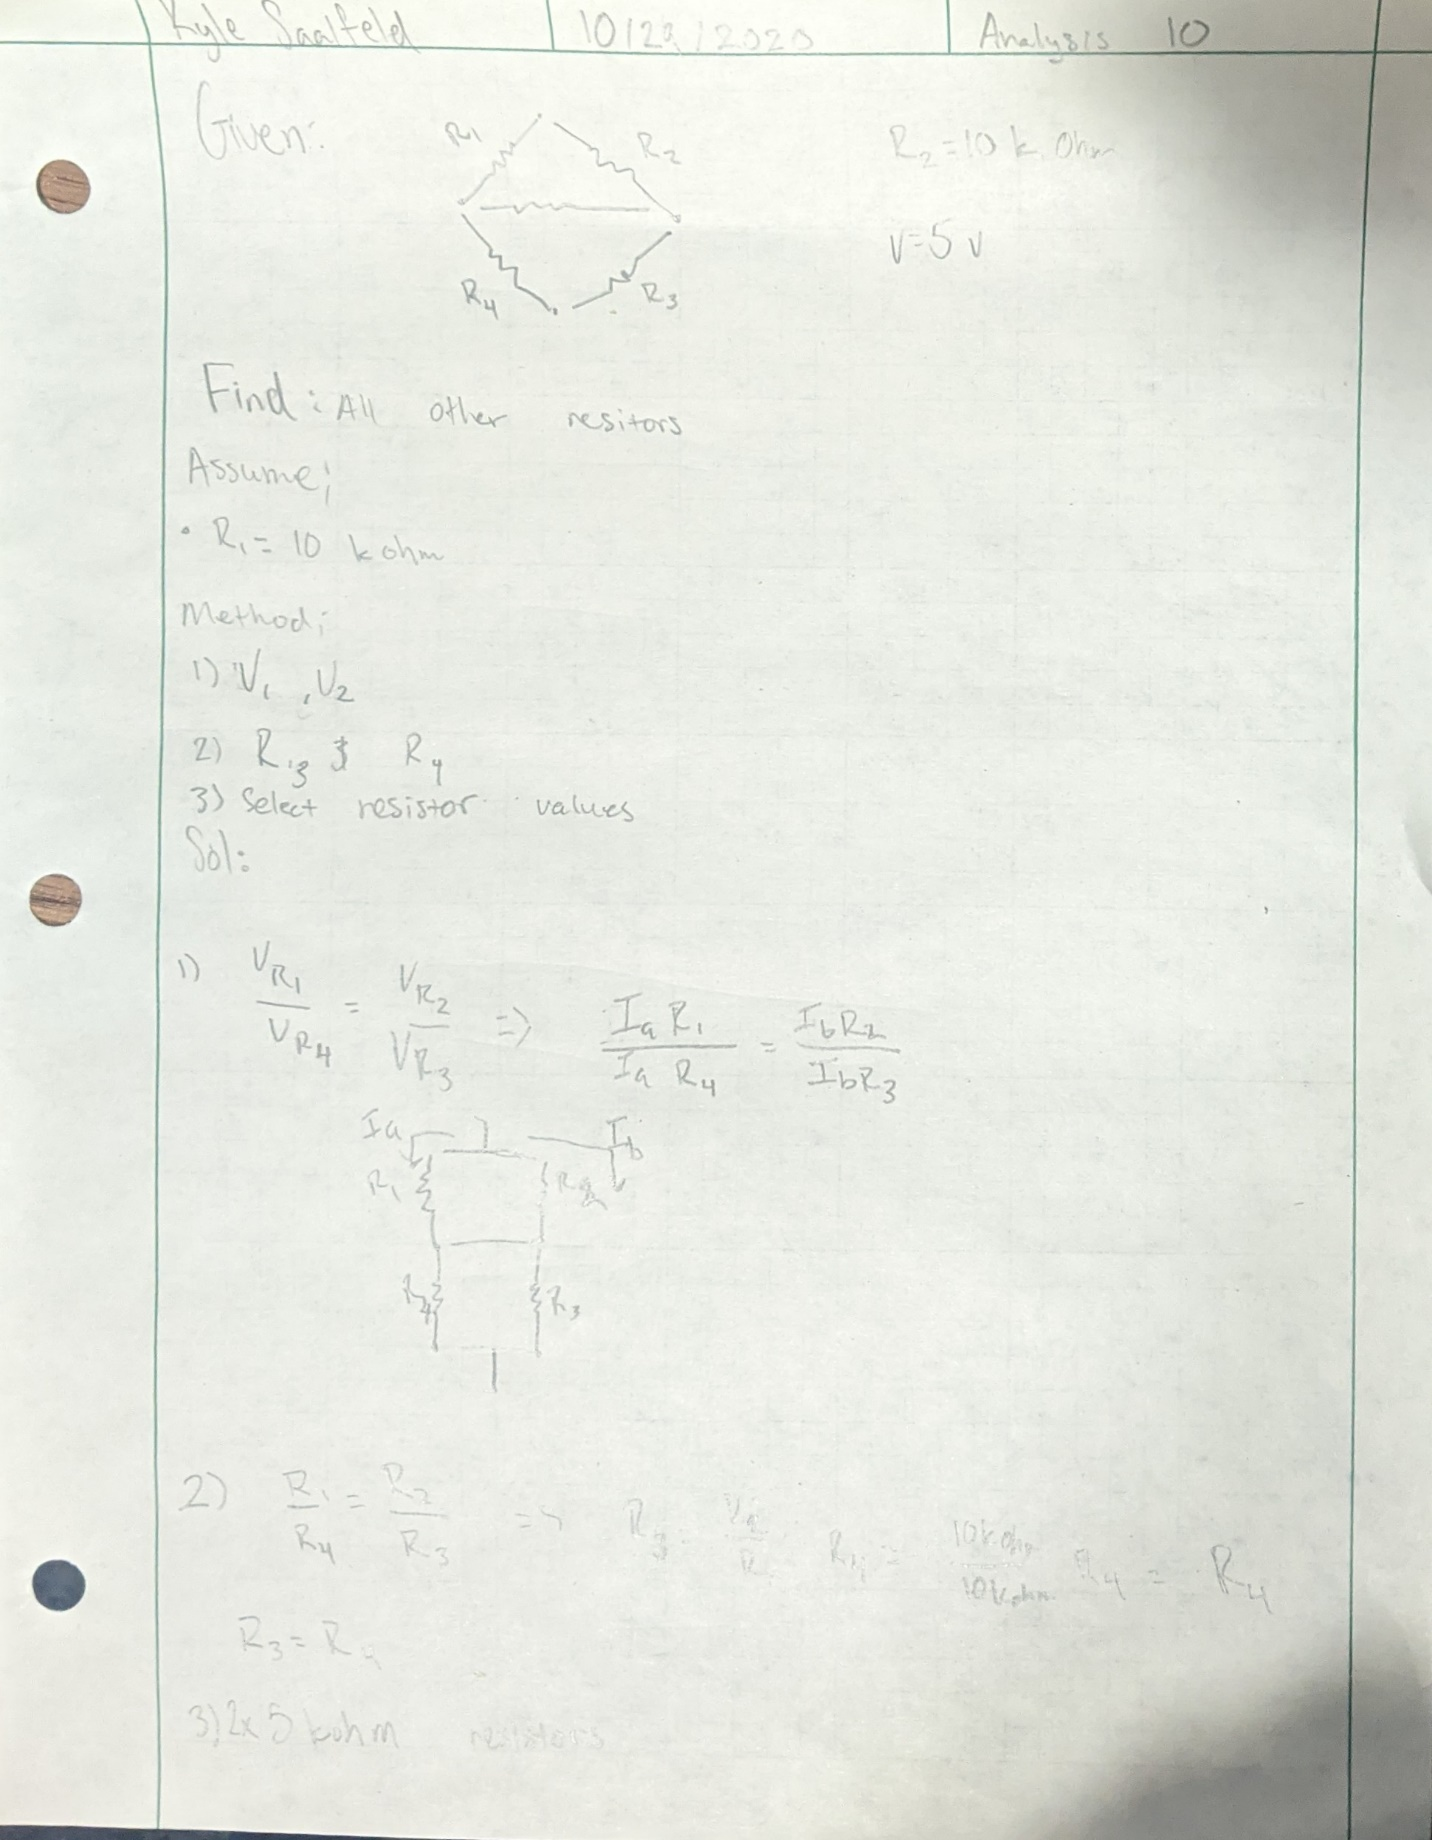 Kyle Saalfeld 10/29/2020 Analysis 10
Given: R1 R2 R2=10 k Ohm
V=5 v
R4 R3
Find: All other resitors
Assume;
• R1= 10 k ohm
Method;
1) V1 , V2
2) R,3 & R4
3) Select resistor values
Sol:
1) VR1/VR4 = VR2/VR3 => IaR1/IaR4 = IbR2/IbR3
Ia Ib
R1 R2
R4 R3
2) R1/R4 = R2/R3 => R3 = 10kohm/10kohm R4 = R4
R3=R4
3) 2x 5 kohm resistors